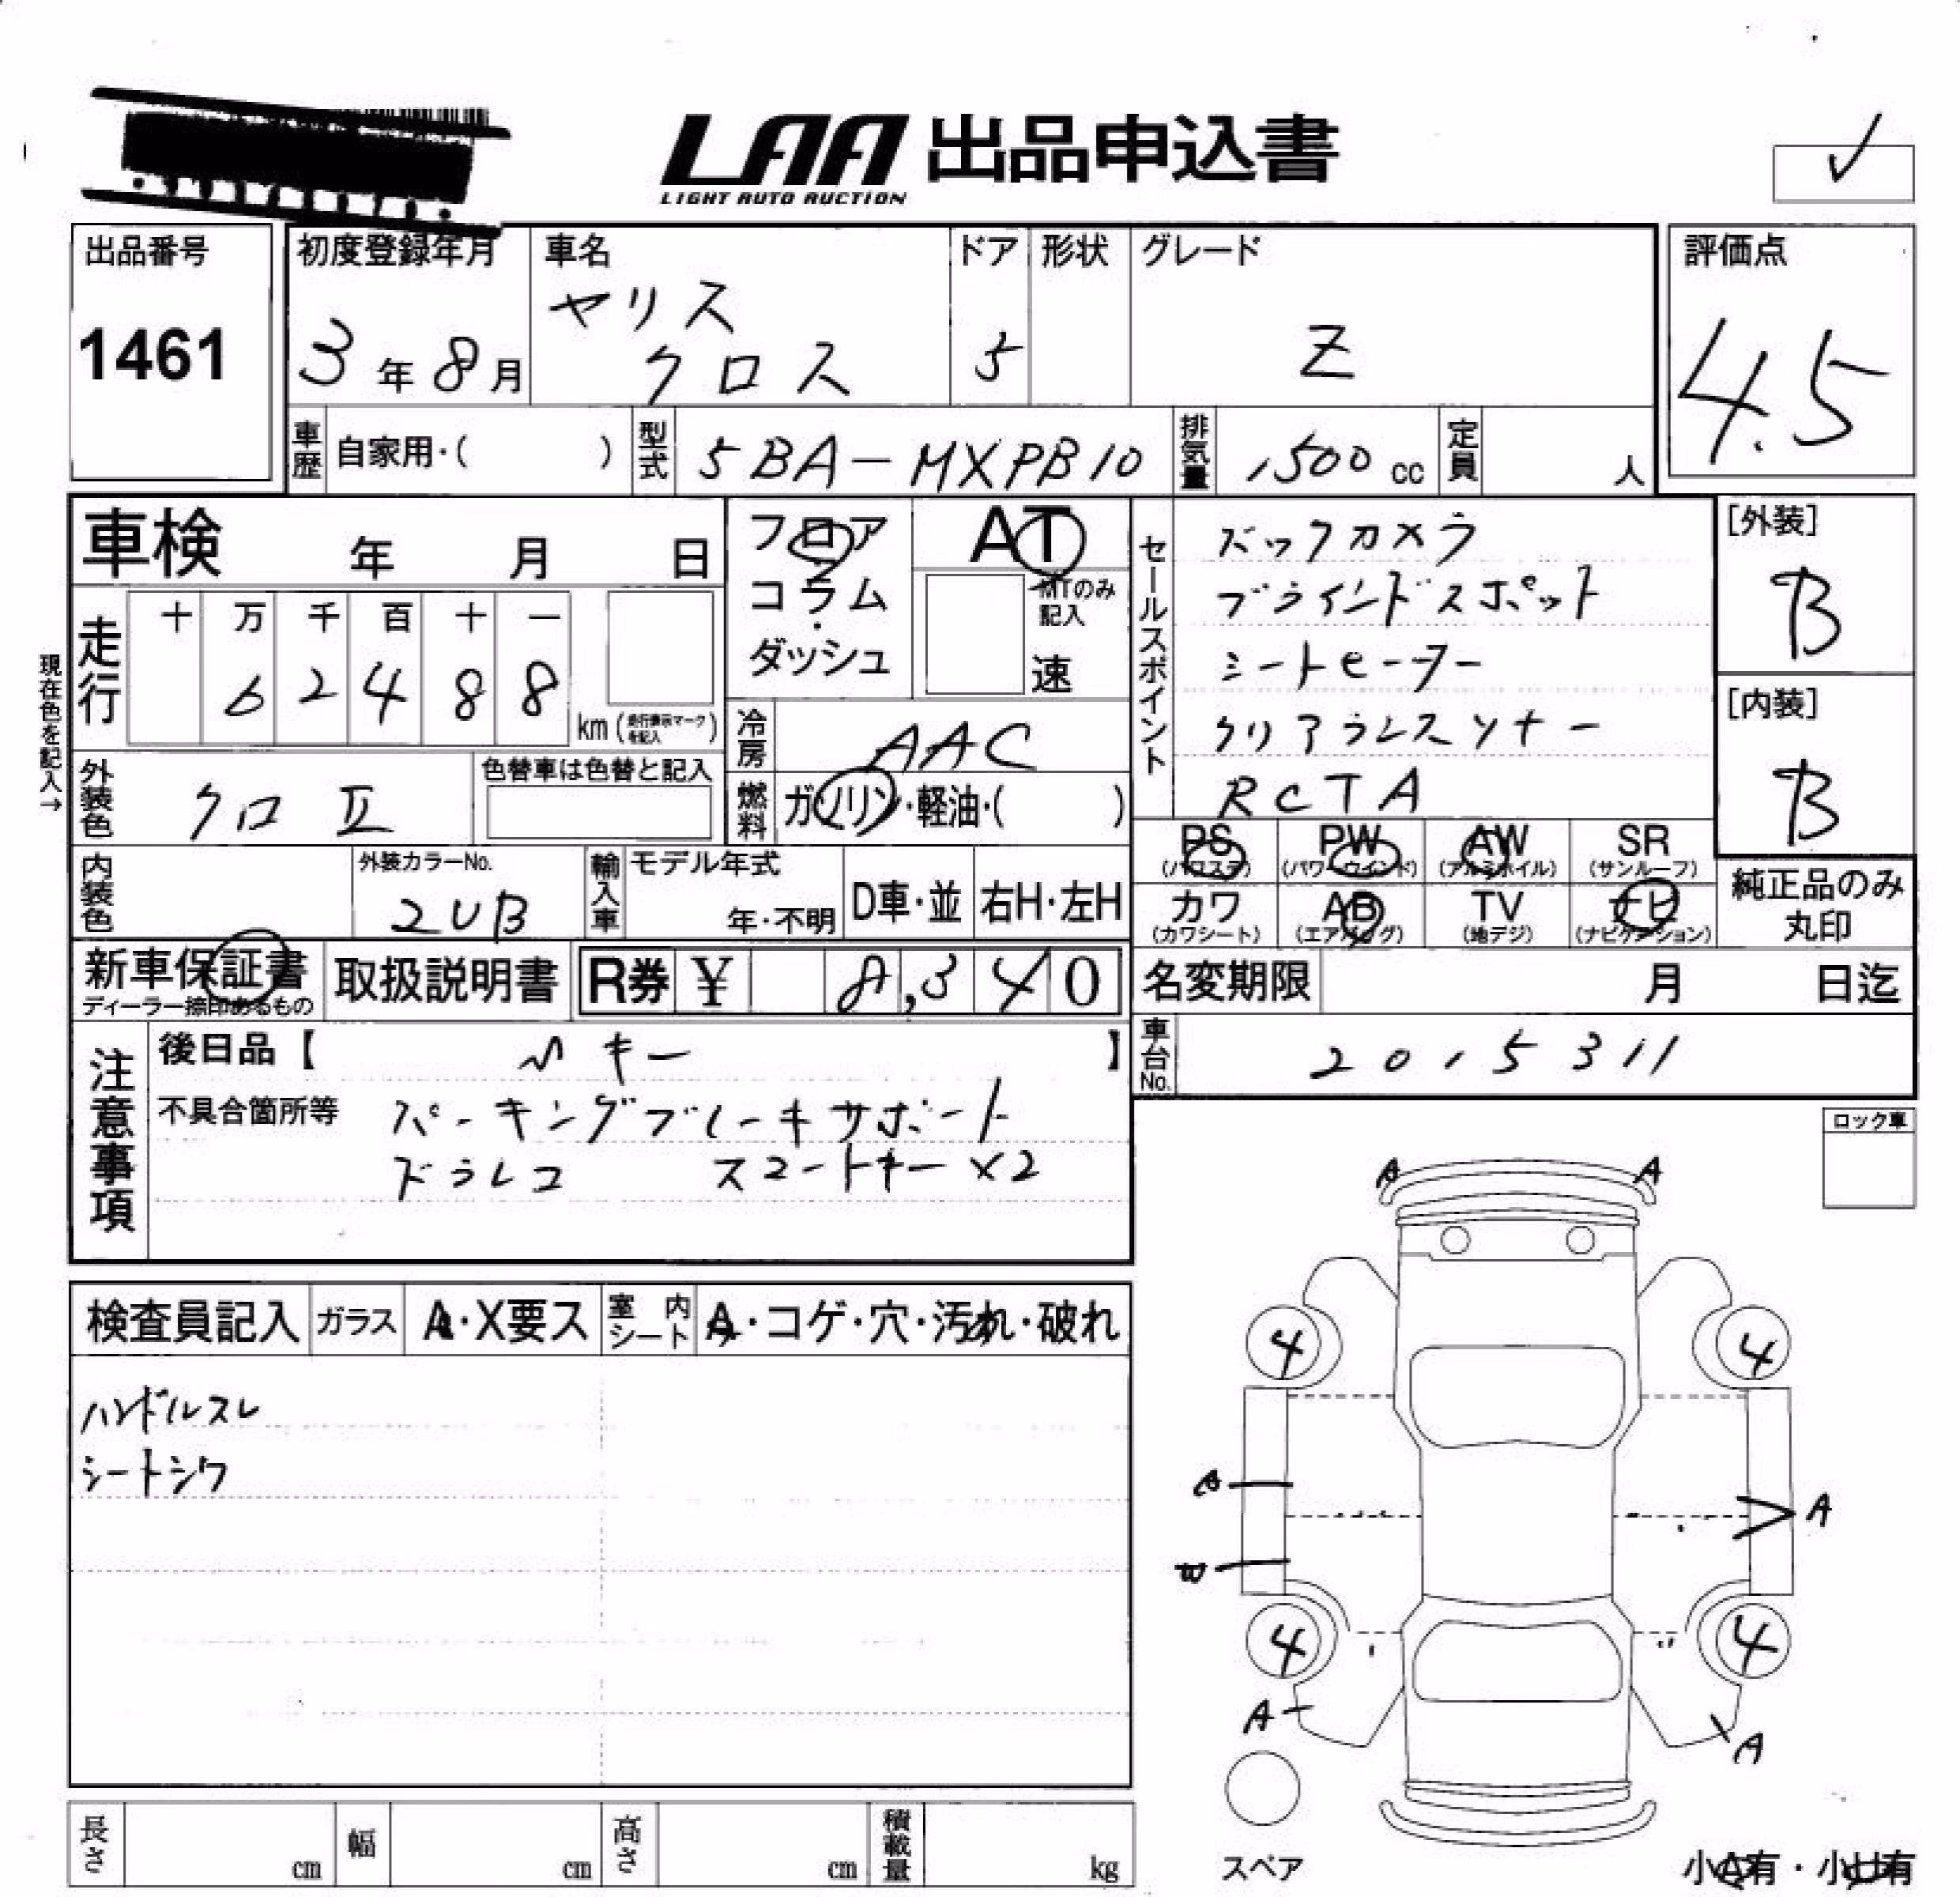 LAA 出品申込書
LIGHT AUTO AUCTION
出品番号
1461
初度登録年月
3年8月
車名
ヤリス
クロス
ドア
5
形状
グレード
Z
評価点
4.5
車歴 自家用・( )
型式 5BA-MXPB10
排気量 1500 cc
定員 人
車検 年 月 日
フロア
コラム
ダッシュ
AT
MTのみ
記入
速
セールスポイント
バックカメラ
ブラインドスポット
シートヒーター
クリアランスソナー
RCTA
[外装]
B
[内装]
B
現在色を記入→
走行
十 万 千 百 十 一
6 2 4 8 8
km (走行表示マークを記入)
冷房 AAC
外装色 クロⅡ
色替車は色替と記入
燃料 ガソリン・軽油・( )
PS PW AW SR
(パワステ) (パワーウインド) (アルミホイル) (サンルーフ)
カワ AB TV ナビ
(カワシート) (エアバッグ) (地デジ) (ナビゲーション)
純正品のみ
丸印
内装色
外装カラーNo.
2UB
輸入車
モデル年式
年・不明
D車・並
右H・左H
新車保証書
ディーラー捺印あるもの
取扱説明書
R券 ¥ 8,340
名変期限 月 日迄
車台No. 2015311
注意事項
後日品【 キー 】
不具合箇所等 パーキングブレーキサポート
ドラレコ スマートキー×2
ロック車
検査員記入 ガラス A・X要ス 室内シート A・コゲ・穴・汚れ・破れ
ハンドルスレ
シートシワ
A A
4 4
A
W
4 4
A A
スペア
小A有・小U有
長さ cm
幅 cm
高さ cm
積載量 kg